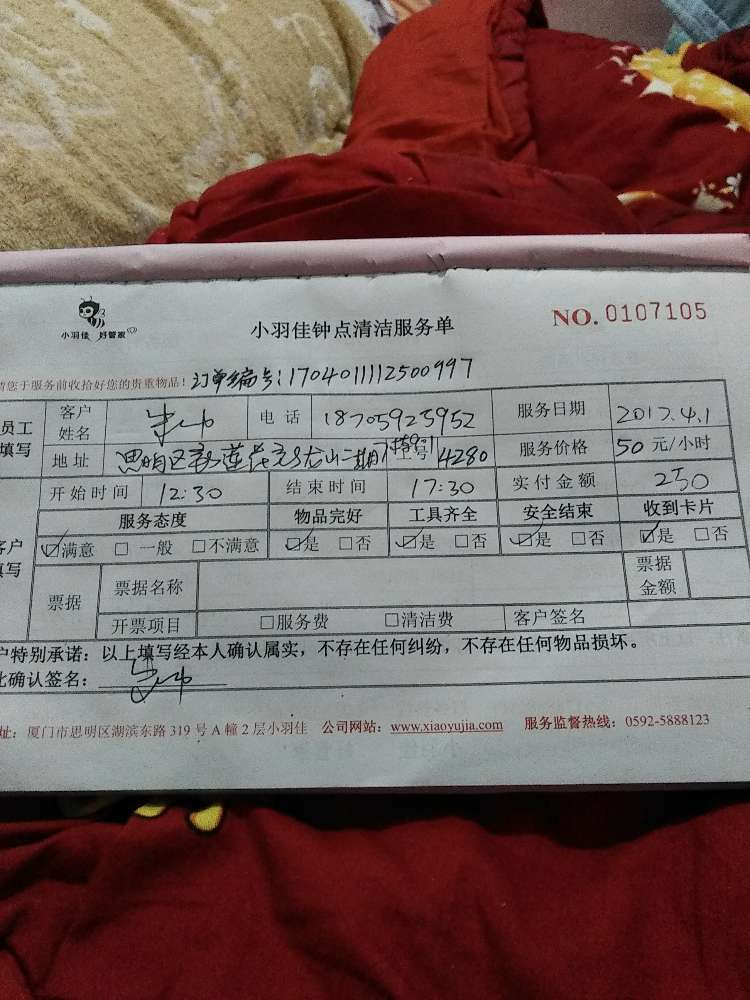 小羽佳 好管家
小羽佳钟点清洁服务单
NO. 0107105
您于服务前收拾好您的贵重物品! 订单编号:1704011112500997
员工填写 客户姓名 电话 18705925952 服务日期 2017.4.1
地址 思明区 莲花 龙山二期 4280 服务价格 50 元/小时
开始时间 12:30 结束时间 17:30 实付金额 250
服务态度 物品完好 工具齐全 安全结束 收到卡片
☑满意 □一般 □不满意 ☑是 □否 ☑是 □否 ☑是 □否 ☑是 □否
户填写 票据 票据名称 票据金额
开票项目 □服务费 □清洁费 客户签名
户特别承诺:以上填写经本人确认属实,不存在任何纠纷,不存在任何物品损坏。
此确认签名:
址:厦门市思明区湖滨东路 319 号 A 幢 2 层小羽佳 公司网站:www.xiaoyujia.com 服务监督热线:0592-5888123